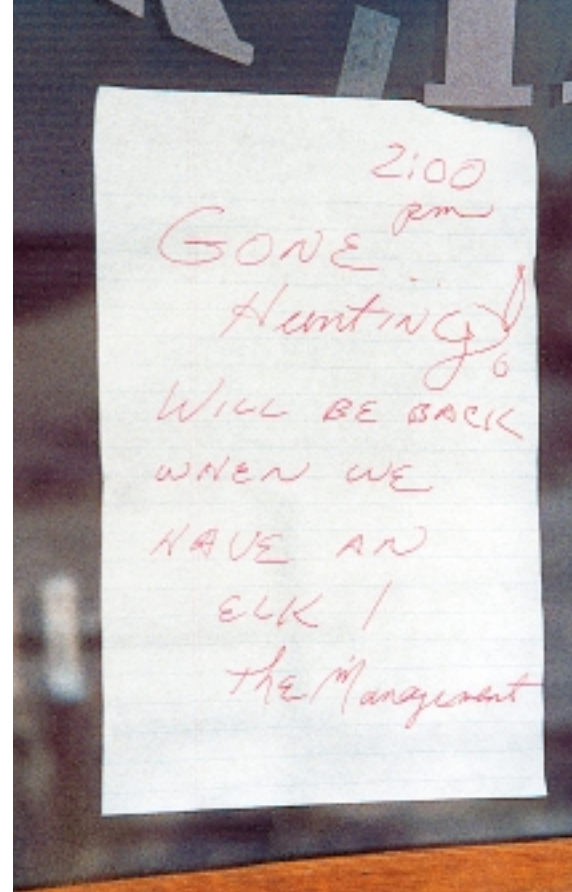 2:00
pm
GONE
HuntING!
WILL BE BACK
WHEN WE
HAVE AN
ELK!
The Management